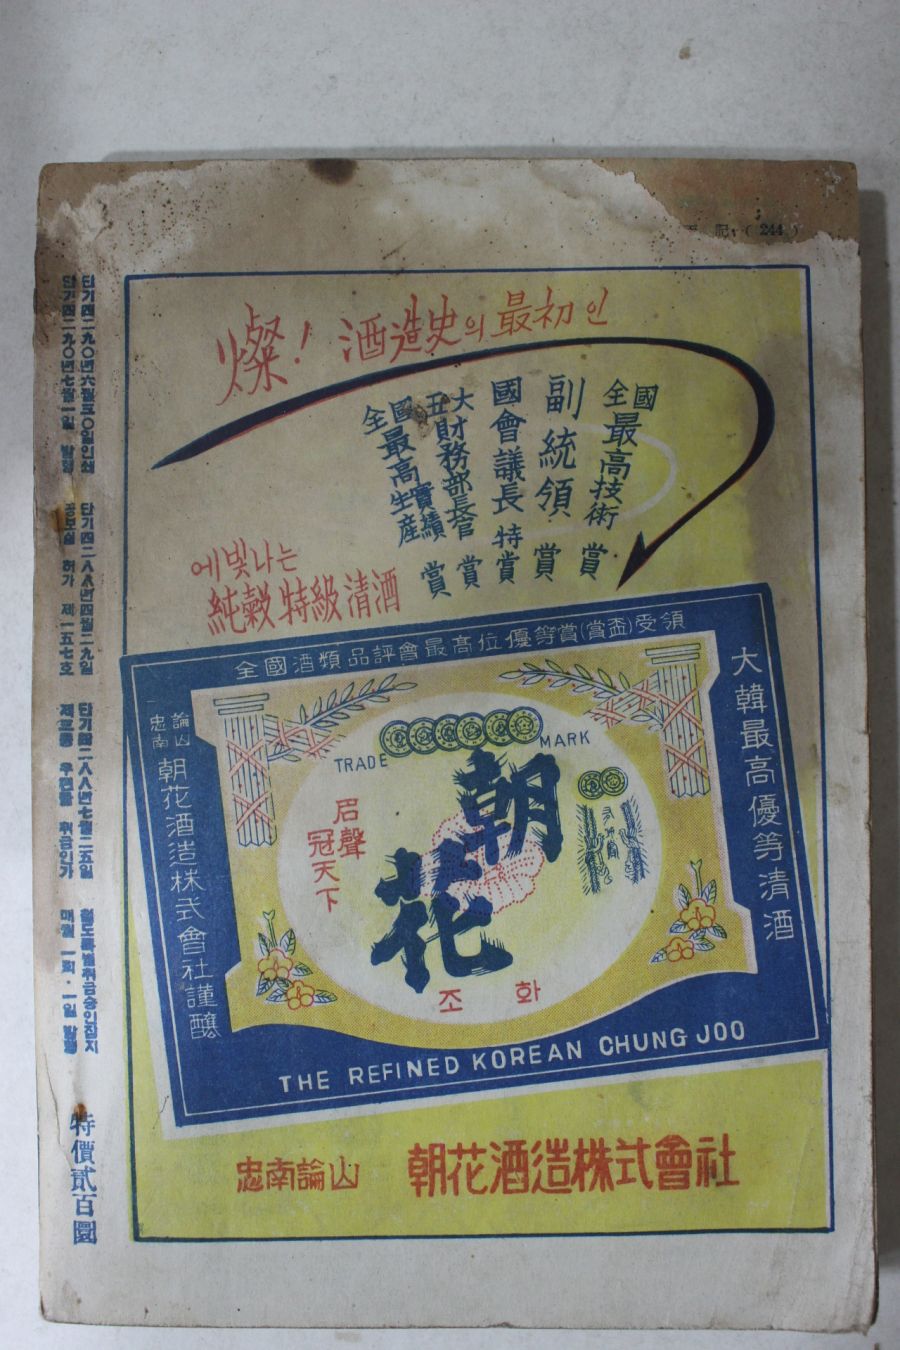 記 (244)
燦! 酒造史의 最初인
全國最高技術賞
副統領賞
國會議長特賞
大財務部長官賞
全國最高生産實績賞
에빛나는
純穀特級清酒
全國酒類品評會最高位優等賞(賞盃)受領
大韓最高優等清酒
忠南論山
朝花酒造株式會社謹釀
TRADE MARK
朝花
名聲冠天下
조화
THE REFINED KOREAN CHUNG JOO
忠南論山 朝花酒造株式會社
단기四二九〇년六월三〇일인쇄 단기四二八八년四월二九일 단기四二八八년七월二五일 철도특별취급승인잡지
단기四二九〇년七월一일 발행 공보실 허가 제一五七호 제三종 우편물 취급인가 매월 一회·一일 발행
特價貳百圜